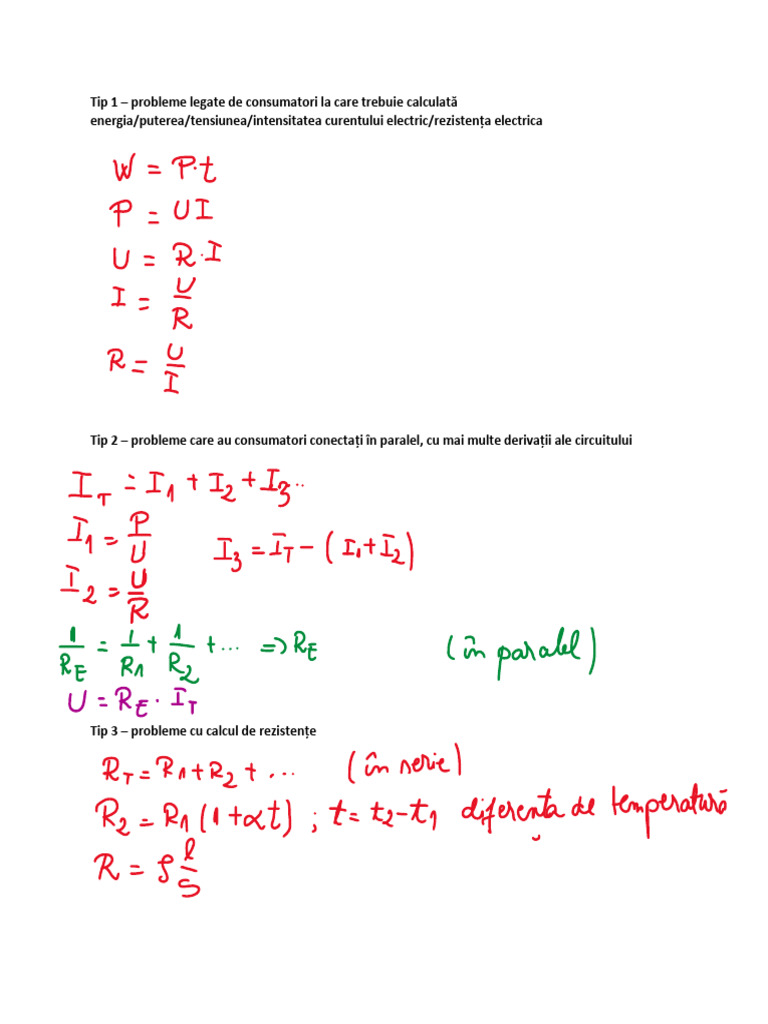 Tip 1 – probleme legate de consumatori la care trebuie calculată
energia/puterea/tensiunea/intensitatea curentului electric/rezistența electrica
W = P·t
P = UI
U = R·I
I = U/R
R = U/I
Tip 2 – probleme care au consumatori conectați în paralel, cu mai multe derivații ale circuitului
I_T = I_1 + I_2 + I_3..
I_1 = P/U
I_3 = I_T – (I_1+I_2)
I_2 = U/R
1/R_E = 1/R_1 + 1/R_2 + ... => R_E (în paralel)
U = R_E · I_T
Tip 3 – probleme cu calcul de rezistențe
R_T = R_1+R_2 + ... (în serie)
R_2 = R_1(1+αt) ; t = t_2–t_1 diferența de temperatură
R = ρ l/S